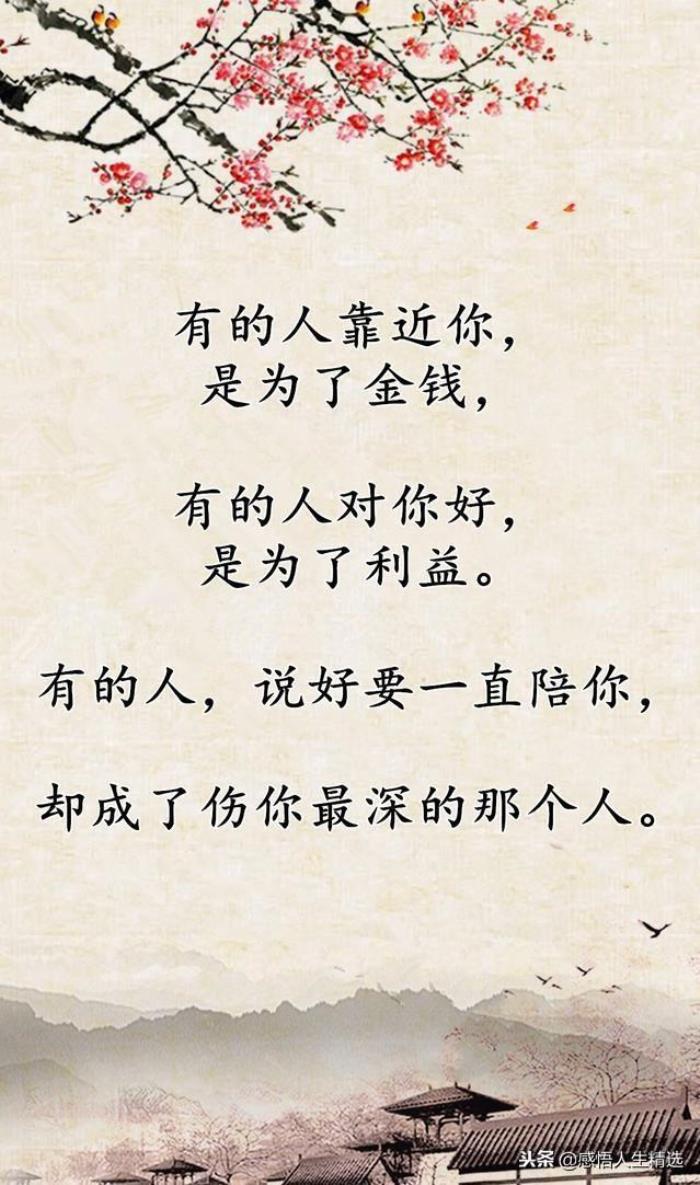 有的人靠近你，
是为了金钱，
有的人对你好，
是为了利益。
有的人，说好要一直陪你，
却成了伤你最深的那个人。
头条 @感悟人生精选